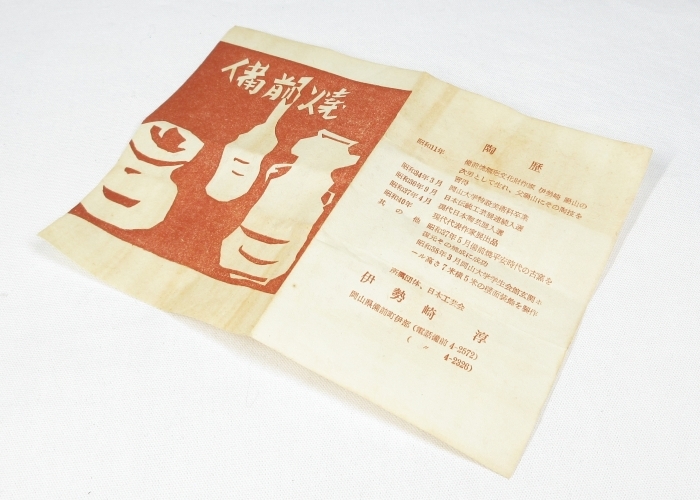 備前焼
陶歴
昭和11年 備前焼無形文化財作家 伊勢崎 陽山の
次男として生れ、父陽山にその陶技を
習得
昭和34年3月 岡山大学特設美術科卒業
昭和36年9月 日本伝統工芸展連続入選
昭和37年4月 現代日本陶芸展入選
昭和40年 現代代表作家展出品
その他 昭和37年5月備前焼平安時代の古窯を
復元その焼成に成功
昭和38年3月岡山大学学生会館玄関ホ
ール高さ7米横5米の壁面装飾を製作
所属団体、日本工芸会
伊勢崎 淳
岡山県備前町伊部(電話備前4-2572)
( 〃 4-2326)